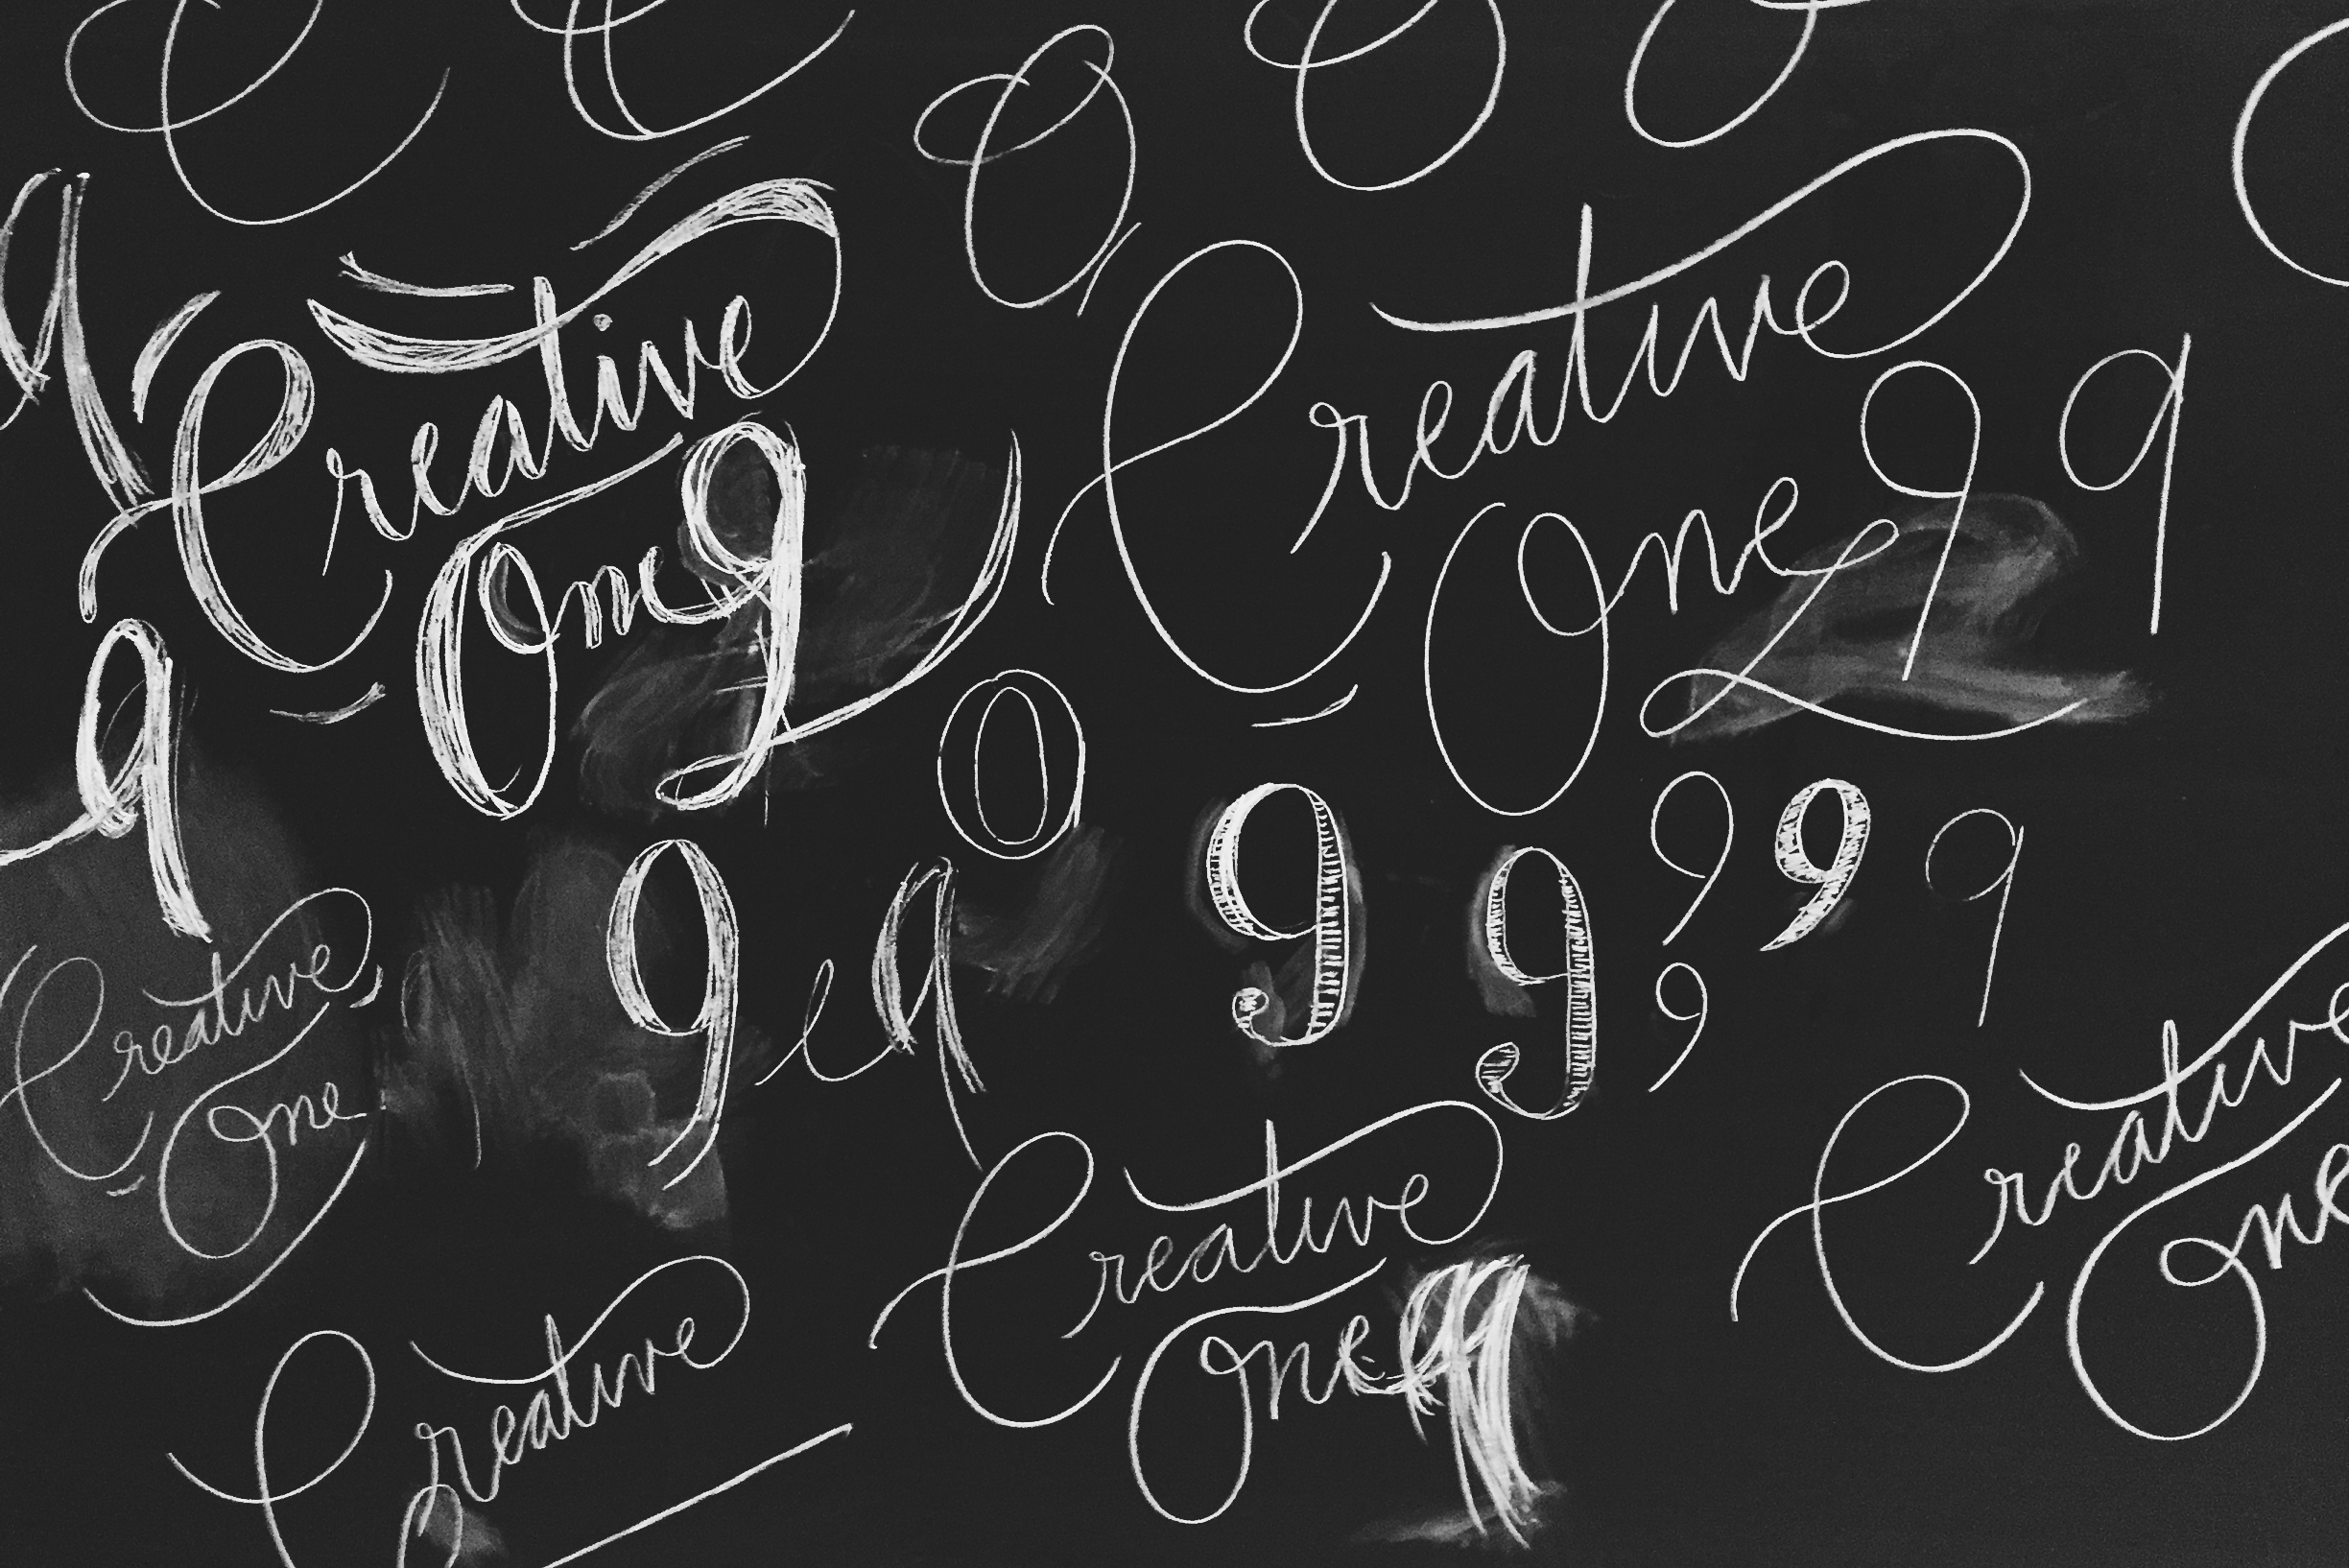 C C O O O
Creative
One 9
Creative
One
9 9
9
9
9
0
9
e9
9
9
9
9
9
9
Creative
One
Creative
One 9
Creative
One
Creative